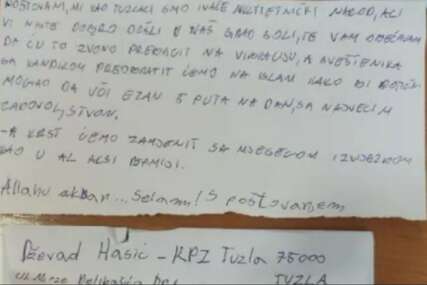 POŠTOVANI, MI KAO TUZLACI SMO INAČE MULTIETNIČKI NAROD, ALI
VI NISTE DOBRO DOŠLI U NAŠ GRAD SOLI, TE VAM OBEĆAVAM
DA ĆU TO ZVONO PREBACIT NA, A SVEŠTENIKA
SA KANDILOM PREOBRATIT ĆEMO NA ISLAM KAKO BI
MOGAO DA UČI EZAN 5 PUTA NA DAN, SA NAJVEĆIM
ZADOVOLJSTVOM.
- A KRST ĆEMO ZAMJENIT SA MJESECOM I ZVJEZDOM
KAO U AL AKSI DŽAMIJI.
Allahu akbar... Selam! S poštovanjem
Dževad Hasić - KPZ Tuzla 75000
TUZLA